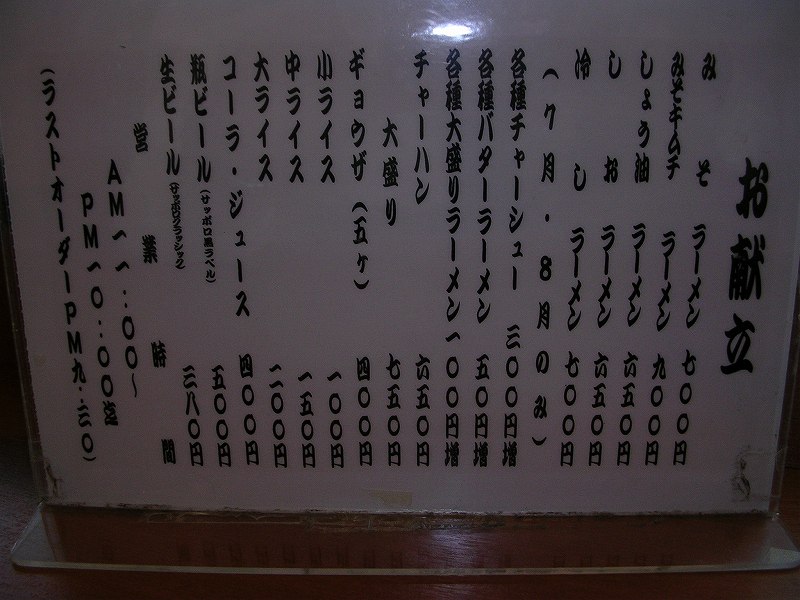 お献立
みそラーメン 七〇〇円
みそキムチラーメン 九〇〇円
しょう油ラーメン 六五〇円
しおラーメン 六五〇円
冷しラーメン 七〇〇円
(7月・8月のみ)
各種チャーシュー 三〇〇円増
各種バターラーメン 五〇円増
各種大盛りラーメン 一〇〇円増
チャーハン 六五〇円
大盛り 七五〇円
ギョウザ(五ヶ) 四〇〇円
小ライス 一〇〇円
中ライス 一五〇円
大ライス 二〇〇円
コーラ・ジュース 四〇〇円
瓶ビール(サッポロ黒ラベル) 五〇〇円
生ビール(サッポロクラッシック) 三八〇円
営業時間
AM一一:〇〇～
PM一〇:〇〇迄
(ラストオーダーPM九:三〇)